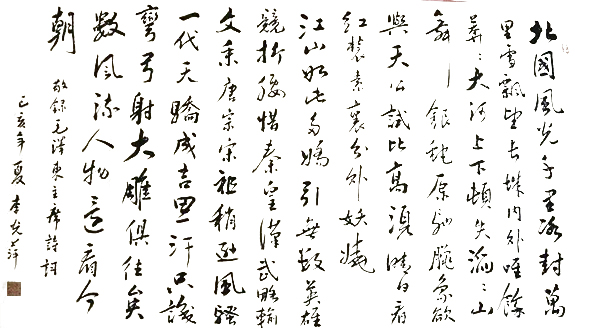 北國風光千里冰封萬
里雪飄望長城内外唯餘
莽〻大河上下頓失滔〻山
舞銀蛇原馳臘象欲
與天公試比高須晴日看
紅裝素裹分外妖嬈
江山如此多嬌引無數英雄
競折腰惜秦皇漢武略輸
文采唐宗宋祖稍遜風騷
一代天驕成吉思汗只識
彎弓射大雕俱往矣
數風流人物還看今
朝
敬録毛澤東主席詩詞
己亥年夏李萍